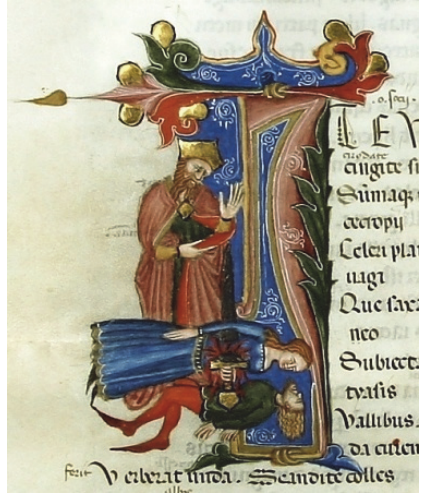 .o. socij.
TE V
circūdate
cingite si
Sūmaq
cecropij
Celeri plan
uagi
Que saxo
neo
Subiecta
trasis
Vallibus.
da curren
ferit Verberat unda. Scandite colles